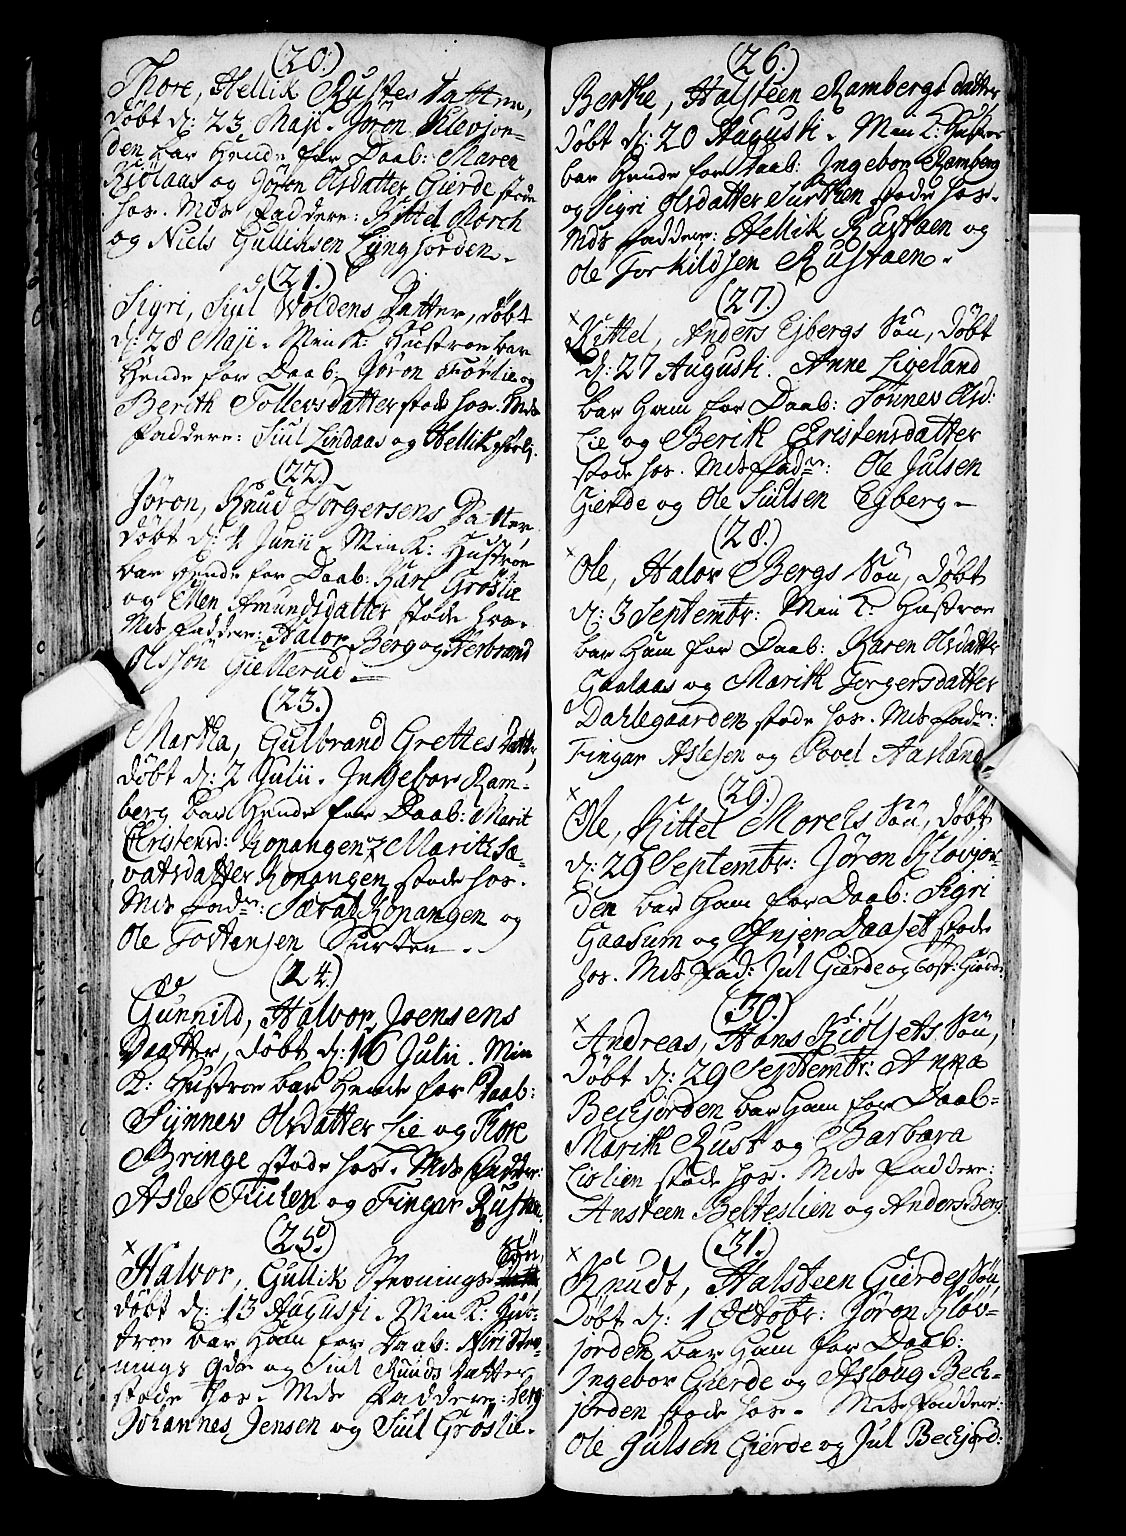 (20.)
Thore, Hellik Rustes Datter,
døbt d: 23 Maji. Jøron Klevjor-
den bar hende for Daab: Maren
Kiølaas og Jøron Olsdatter Gierde stode
hos. Mds Faddere: Kittel Morch
og Niels Gulliksen Lyngjorden.
(21.)
Sigri, Siul Woldens Datter, døbt
d: 28 Maji. Min K: Hustroe bar
hende for Daab: Jøron Førlie og
Berith Tollevsdatter stode hos. Mds
Faddere: Siul Lindaas og Hellik
(22.)
Jøron, Knud Torgersens Datter
døbt d: 4 Junii. Min K: Hustroe
bar hende for Daab: Kari Groslie
og Ellen Amundsdatter stode hos.
Mds Faddere: Halvor Berg og Herbrand
Olssøn Giellerud.
(23.)
Martha, Gulbrand Grettes Datter,
døbt d: 2 Julii. Ingebor Ram-
berg bar hende for Daab: Marit
Christensd: Kopangen og Marith Sæ-
vatsdatter Kopangen stode hos.
Mds Fadr: Sævat Kopangen og
Ole Tostensen Surteen.
(24.)
Gunnild, Halvor Joensens
Daatter, døbt d: 16 Julii. Min
K: Hustroe bar hende for Daab:
Synnev Olsdatter Lie og Thore
Bringe stode hos. Mds Fadder:
Asle Fliilen og Fingar Rusten.
(25.)
× Halvor, Gullik Stevnings Søn,
døbt d: 13 Augusti. Min K: Hus-
troe bar ham for Daab: Siri Stev-
nings Øde og Siul Knuds Datter
stode hos. Mds Faddere: Serg
Johannes Jensen og Siul Groslie.
(26.)
Berthe, Halsteen Rambergs Datter
døbt d: 20 Augusti. Min K: Hustroe
bar hende for Daab: Ingebor Ramberg
og Sigri Olsdatter Surteen stode hos.
Mds Faddere: Hellik Rustaen og
Ole Torkildsen Rustaen.
(27.)
× Kittel, Anders Ejbergs Søn, døbt
d: 27 Augusti. Anne Ligeland
bar ham for Daab: Sønnev Olsd:
Lie og Berith Christensdatter
stode hos. Mds Fadr: Ole Julsen
Gierde og Ole Siulsen Ejberg.
(28.)
× Ole, Halvor Bergs Søn, døbt
d: 3 Septembr: Min K: Hustroe
bar ham for Daab: Karen Olsdatter
Gaalaas og Marith Torgersdatter
Dahlegaarden stode hos. Mds Fadr:
Fingar Aslesen og Povel Aasland.
(29.)
× Ole, Kittel Morchs Søn, døbt
d: 29 Septembr: Jøren Klovjor-
den bar ham for Daab: Sigri
Gaasum og Anjer Daaset stode
hos. Mds Fad: Jul Gierde og Tost: Gierde.
(30.)
× Andreas, Hans Kiølsets Søn,
døbt d: 29 Septembr: Anna
Beckjorden bar ham for Daab=
Marith Rust og Barbara
Lislien stode hos. Mds Faddere:
Ansteen Belteslien og Anders Berg
(31.)
× Knudt, Halsteen Gierdes Søn,
døbt d: 1 Octobr: Jøron Kløv-
jorden bar ham for Daab:
Ingebor Gierde og Aslaug Beck-
jorden stode hos. Mds Faddere:
Ole Julsen Gierde og Jul Beckjord: